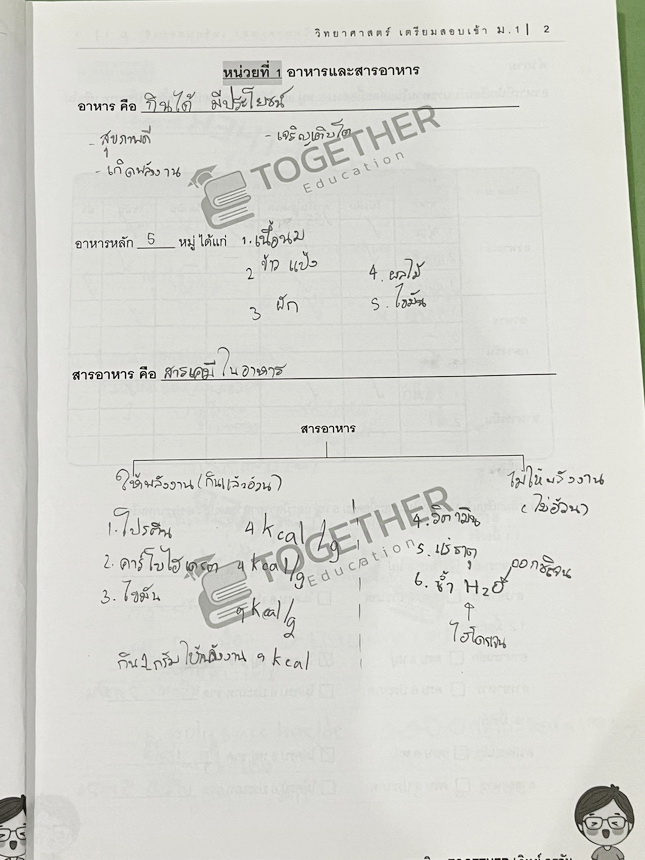 วิทยาศาสตร์ เตรียมสอบเข้า ม.1| 2
หน่วยที่ 1 อาหารและสารอาหาร
อาหาร คือ กินได้ มีประโยชน์
- สุขภาพดี - เจริญเติบโต
- เกิดพลังงาน
TOGETHER
Education
อาหารหลัก 5 หมู่ ได้แก่ 1. เนื้อนม
2 ข้าว แป้ง 4. ผลไม้
3 ผัก 5. ไขมัน
สารอาหาร คือ สารเคมี ในอาหาร
สารอาหาร
ให้พลังงาน (กินแล้วอ้วน) ไม่ให้พลังงาน
(ไม่อ้วน)
1. โปรตีน 4 kcal/g 4. วิตามิน
2. คาร์โบไฮเดรต 4 kcal/g 5. แร่ธาตุ
3. ไขมัน 9 kcal/g 6. น้ำ H2O ออกซิเจน
ไฮโดรเจน
TOGETHER
Education
กิน 1 กรัม ให้พลังงาน 9 kcal